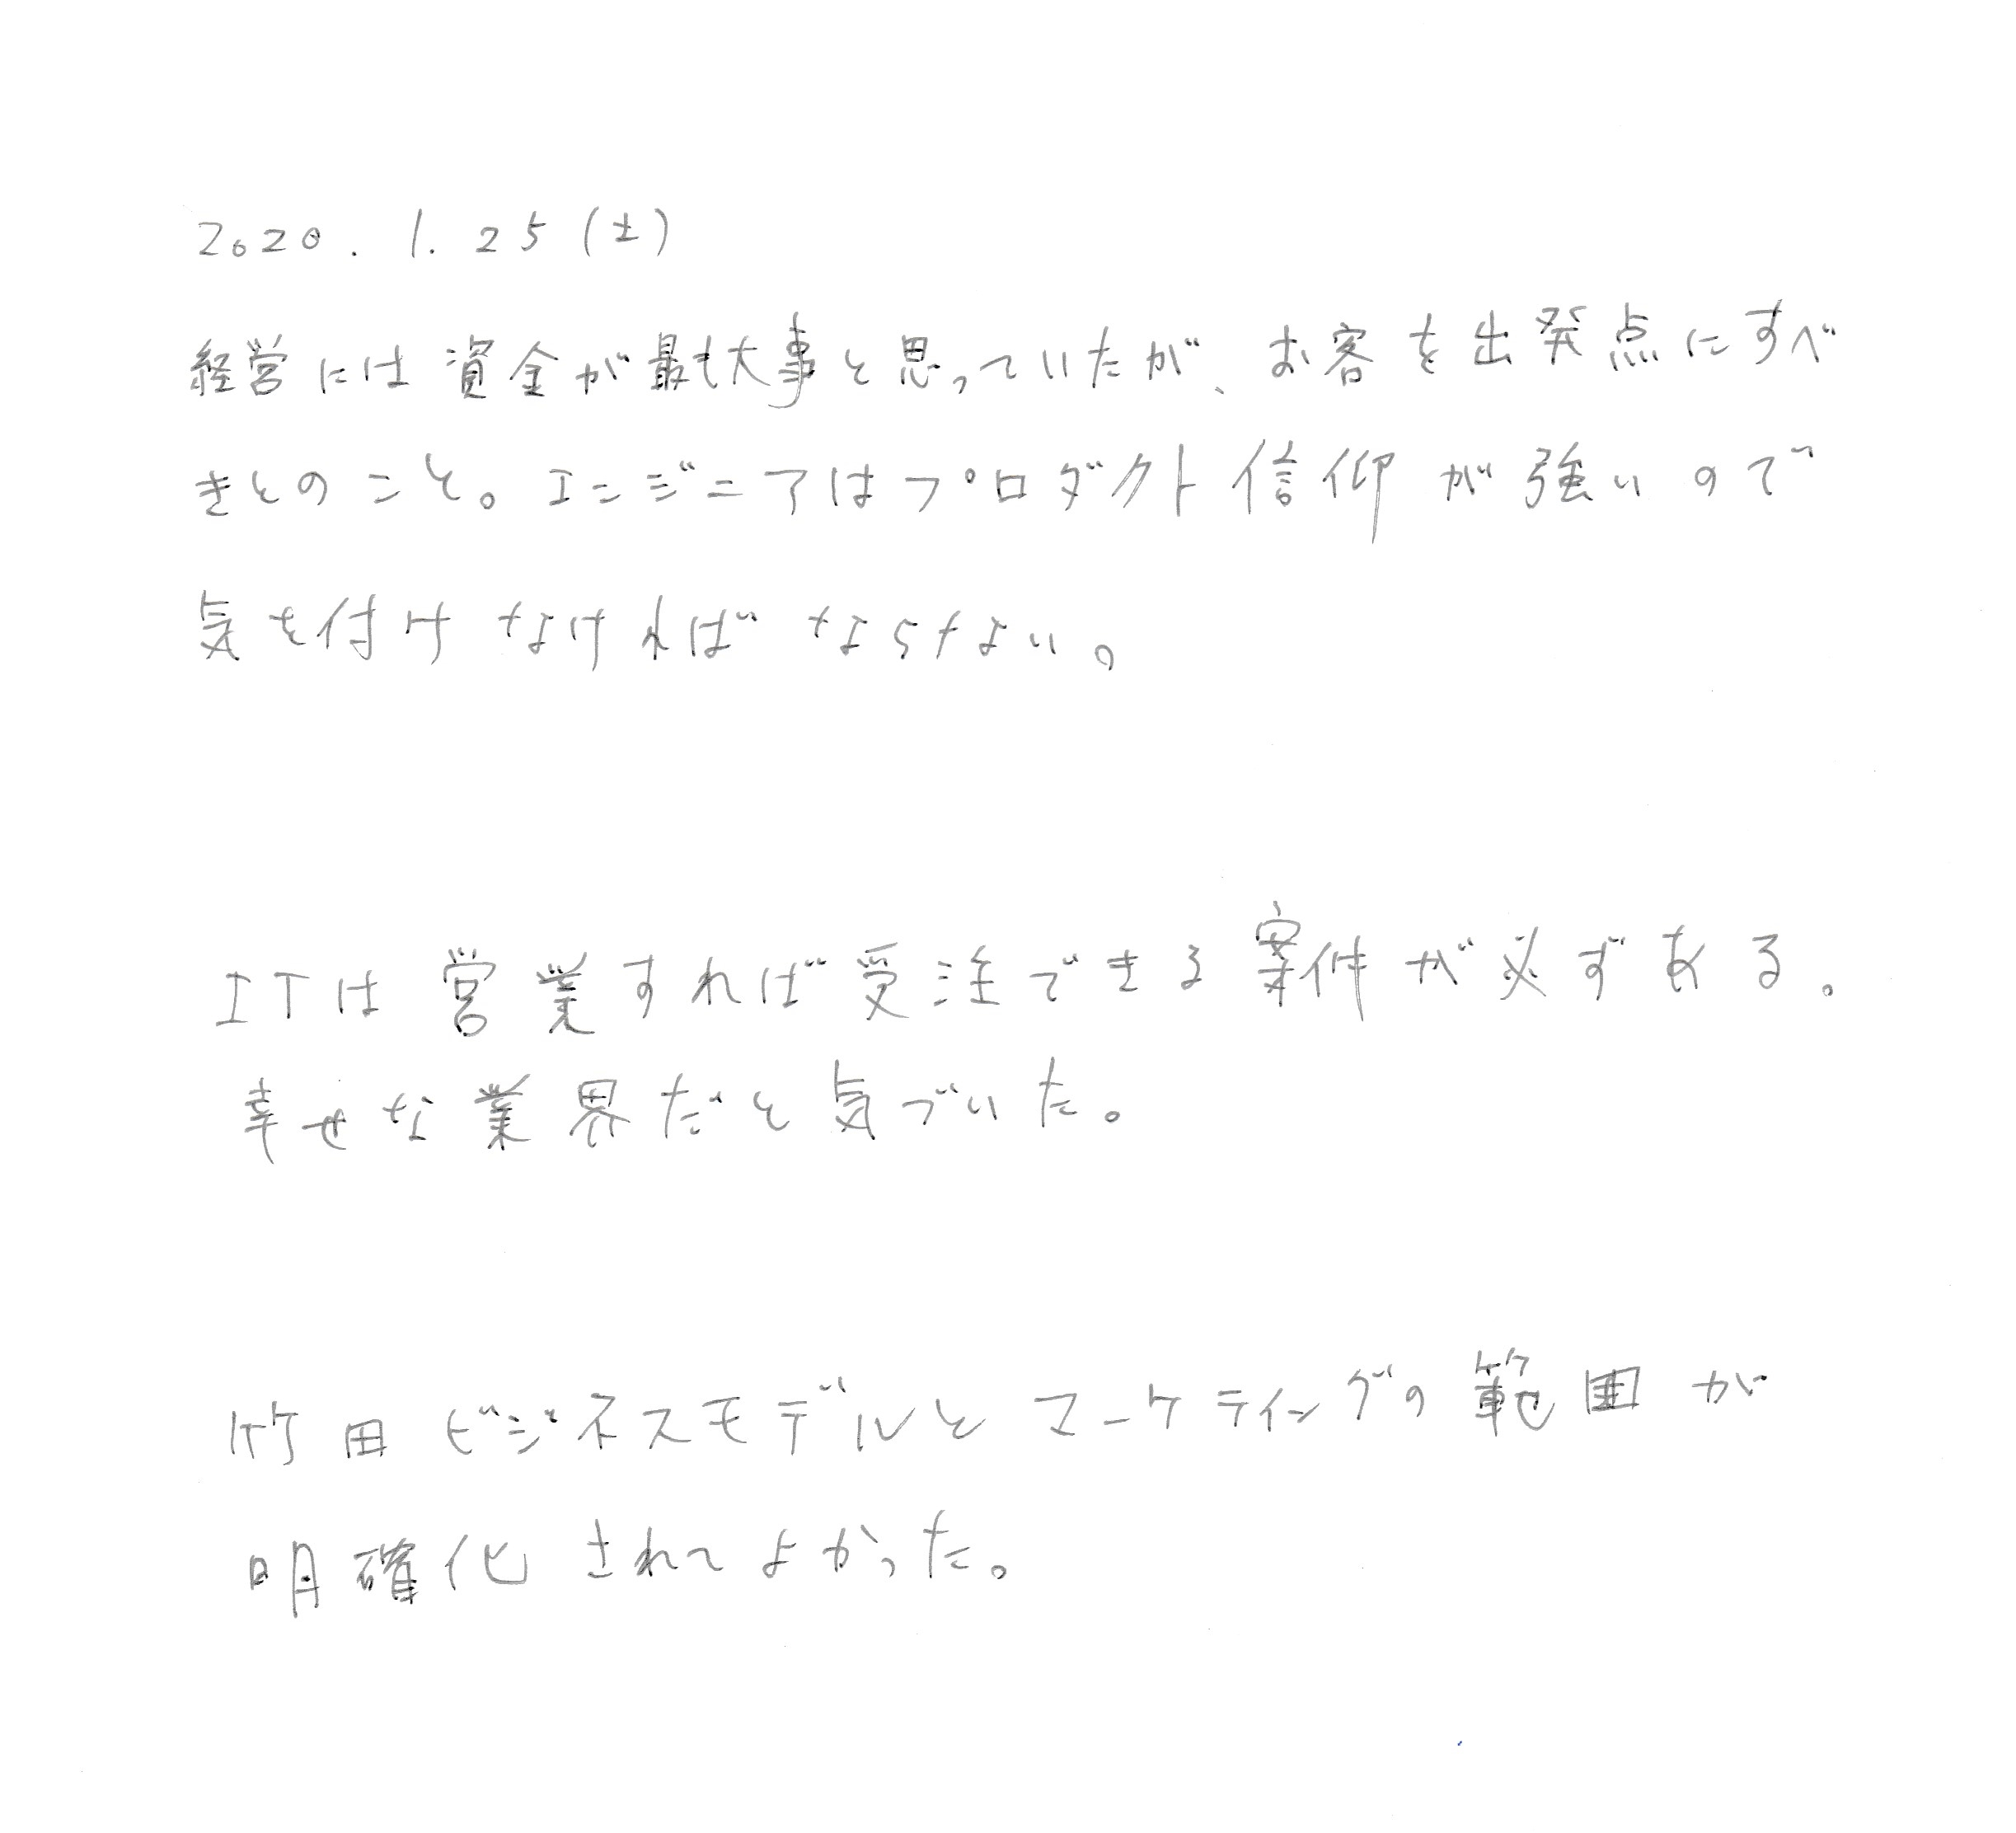 2020. 1. 25 (土)
経営には資金が最も大事と思っていたが、お客を出発点にすべ
きとのこと。エンジニアはプロダクト信仰が強いので
気を付けなければならない。
ITは営業すれば受注できる案件が必ずある。
幸せな業界だと気づいた。
竹田ビジネスモデルとマーケティングの範囲が
明確化されてよかった。